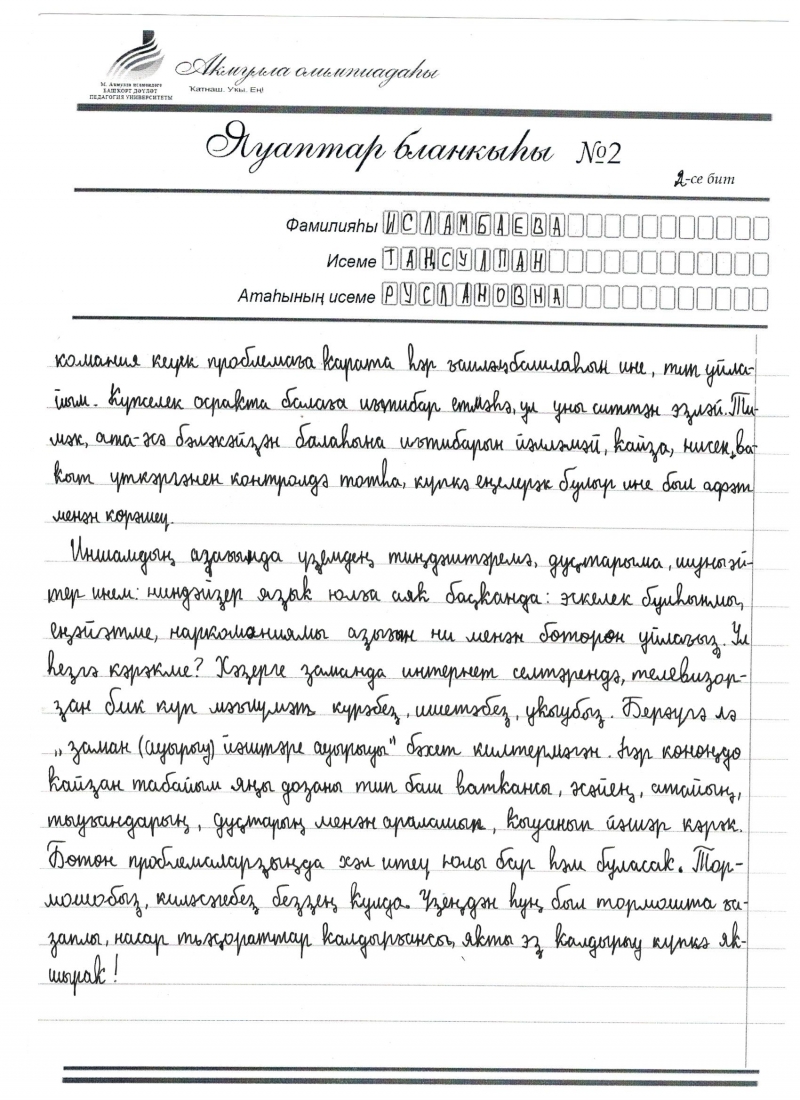 М. Акмулла исемендәге
БАШКОРТ ДӘҮЛӘТ
ПЕДАГОГИЯ УНИВЕРСИТЕТЫ
Акмулла олимпиадаһы
Ҡатнаш. Уҡы. Ең!
Яуаптар бланкыһы №2
2-се бит
Фамилияһы ИСЛАМБАЕВА
Исеме ТАҢСУЛПАН
Атаһының исеме РУСЛАНОВНА
комания кеүек проблемаға ҡарата һәр ғаилә башлаһын ине, тип уйла-
йым. Күпселек осраҡта балаға иғтибар етмәһә, ул уны ситтән эҙләй. Ти-
мәк, ата-әсә бәләкәйҙән балаһына иғтибарын йәлләмәй, ҡайҙа, нисек, ва-
ҡыт үткәргәнен контролдә тотһа, күпкә еңелерәк булыр ине был афәт
менән көрәшеү.
Иншамдың аҙағында үҙемдең тиңдәштәремә, дуҫтарыма, шуны әй-
тер инем: ниндәйҙер яҙыҡ юлға аяҡ баҫҡанда: эскелек булһынмы,
енәйәтме, наркоманиямы аҙағын ни менән бөтөрөн уйлағыҙ. Ул
һеҙгә кәрәкме? Хәҙерге заманда интернет селтәрендә, телевизор-
ҙан бик күп мәғлүмәт күрәбеҙ, ишетәбеҙ, уҡыйбыҙ. Берәүгә лә
„заман (ауырыу) йәштәре ауырыуы" бәхет килтермәгән. Һәр көнөңдө
ҡайҙан табайым яңы дозаны тип баш ватҡансы, әсәйең, атайың,
тыуғандарың, дуҫтарың менән аралашып, ҡыуанып йәшәр кәрәк.
Бөтөн проблемаларҙыңда хәл итеү юлы бар һәм буласаҡ. Тор-
мошобыҙ, киләсәгебеҙ беҙҙең ҡулда. Үҙеңдән һуң был тормошта ға-
заплы, насар тьәҫораттар ҡалдырғансы, яҡты эҙ ҡалдырыу күпкә яҡ-
шыраҡ!